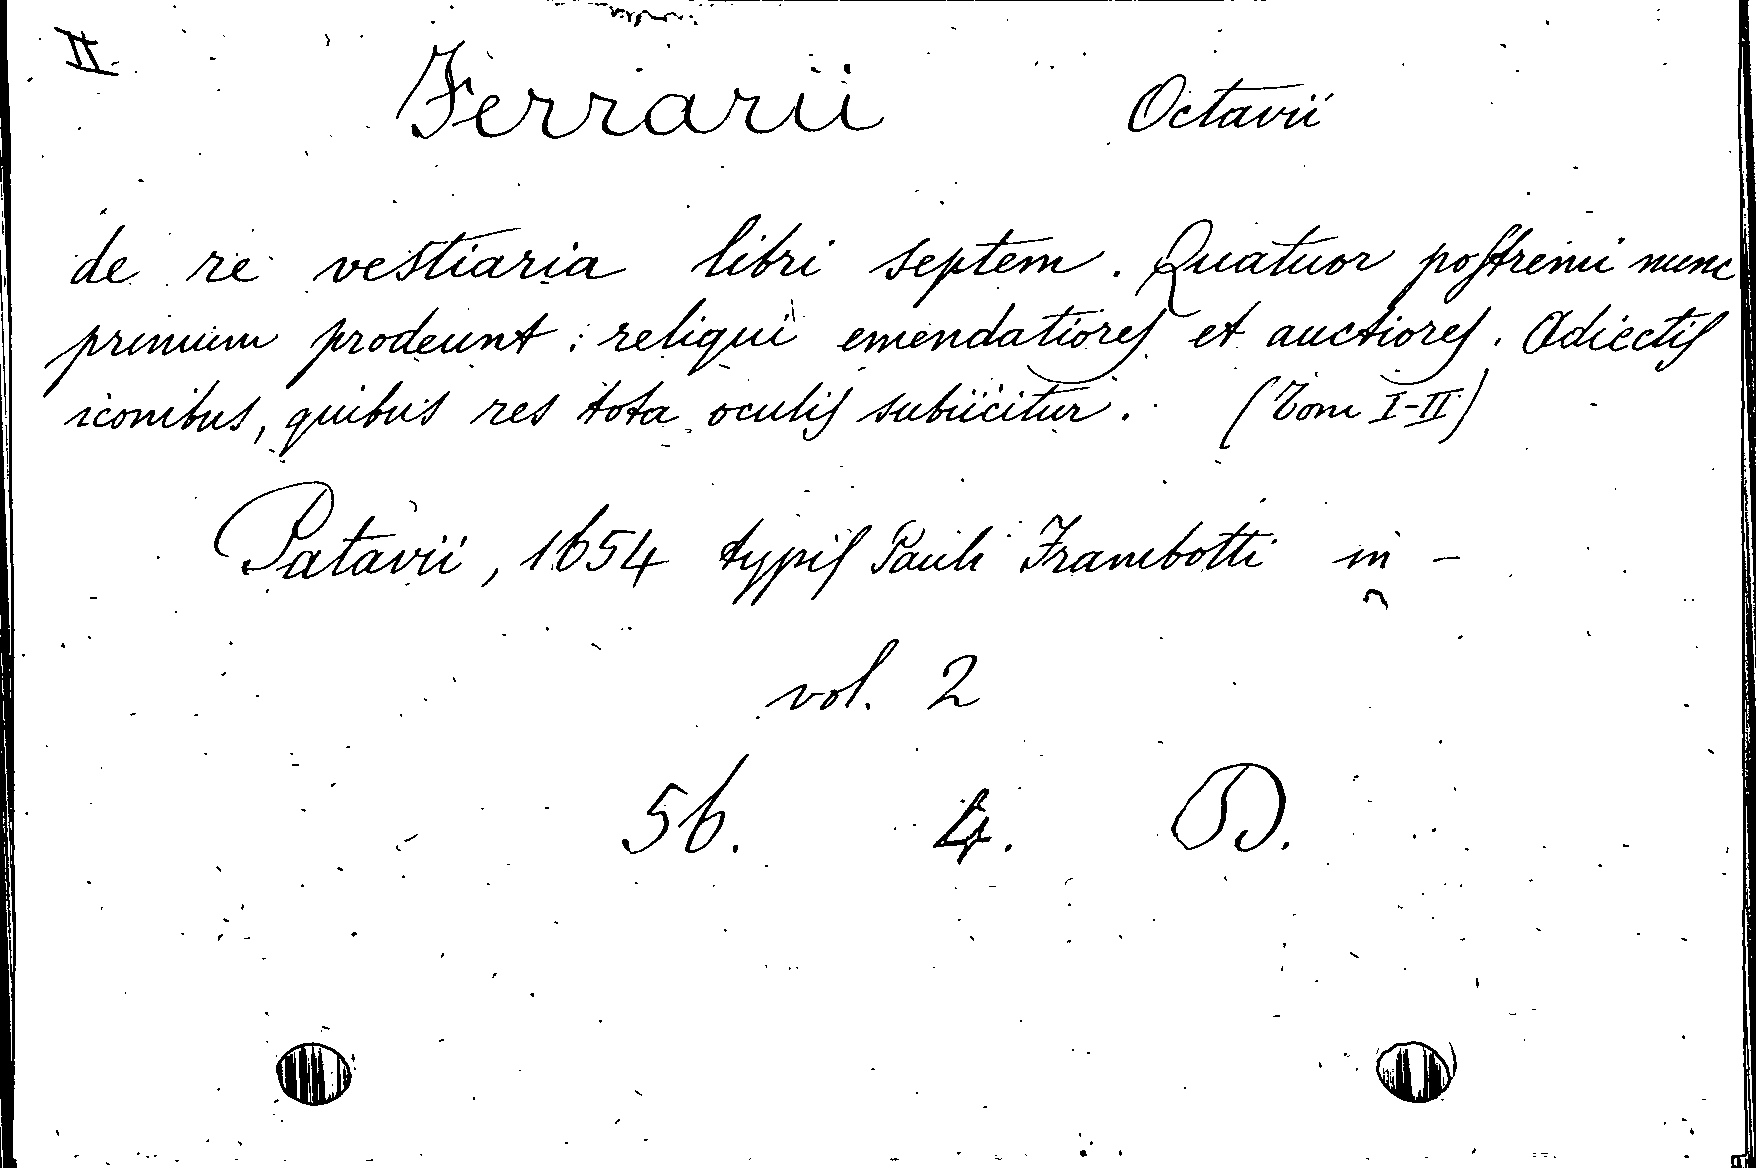 II.
Ferrarii Octavii
de re vestiaria libri septem. Quatuor poſtremi nunc
primum prodeunt: reliqui emendatioreſ et auctioreſ. Adiectiſ
iconibus, quibus res tota oculiſ subiicitur. (Tom I-II)
Patavii, 1654 typiſ Pauli Frambotti in -
vol. 2
56. 4. D.